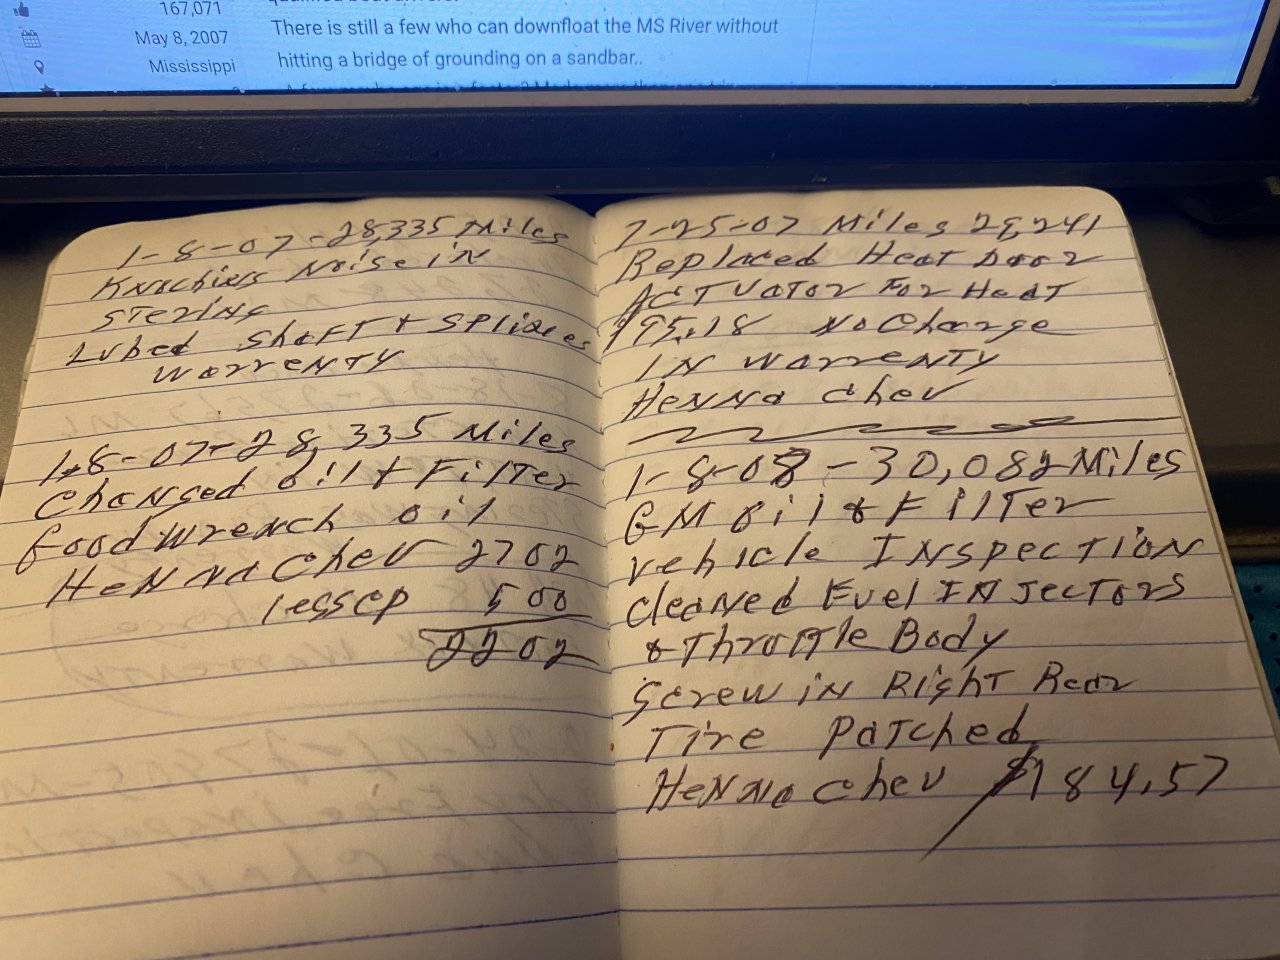 167,071
May 8, 2007
Mississippi
There is still a few who can downfloat the MS River without
hitting a bridge of grounding on a sandbar..
1-8-07-28,335 Miles
Knocking Noise in
Stering
Lubed Shaft + Splines
Warrenty
1-8-07-28,335 Miles
Changed oil + Filter
Goodwrench oil
Henna Chev 2702
lesscp 500
2202
7-25-07 Miles 29,241
Replaced Heat Door
Actuator For Heat
$195.18 No Charge
IN Warrenty
Henna Chev
1-8-08-30,082 Miles
GM oil & Filter
Vehicle INspection
Cleaned Fuel INJectors
& Throttle Body
Screw in Right Rear
Tire Patched
Henna Chev $184.57